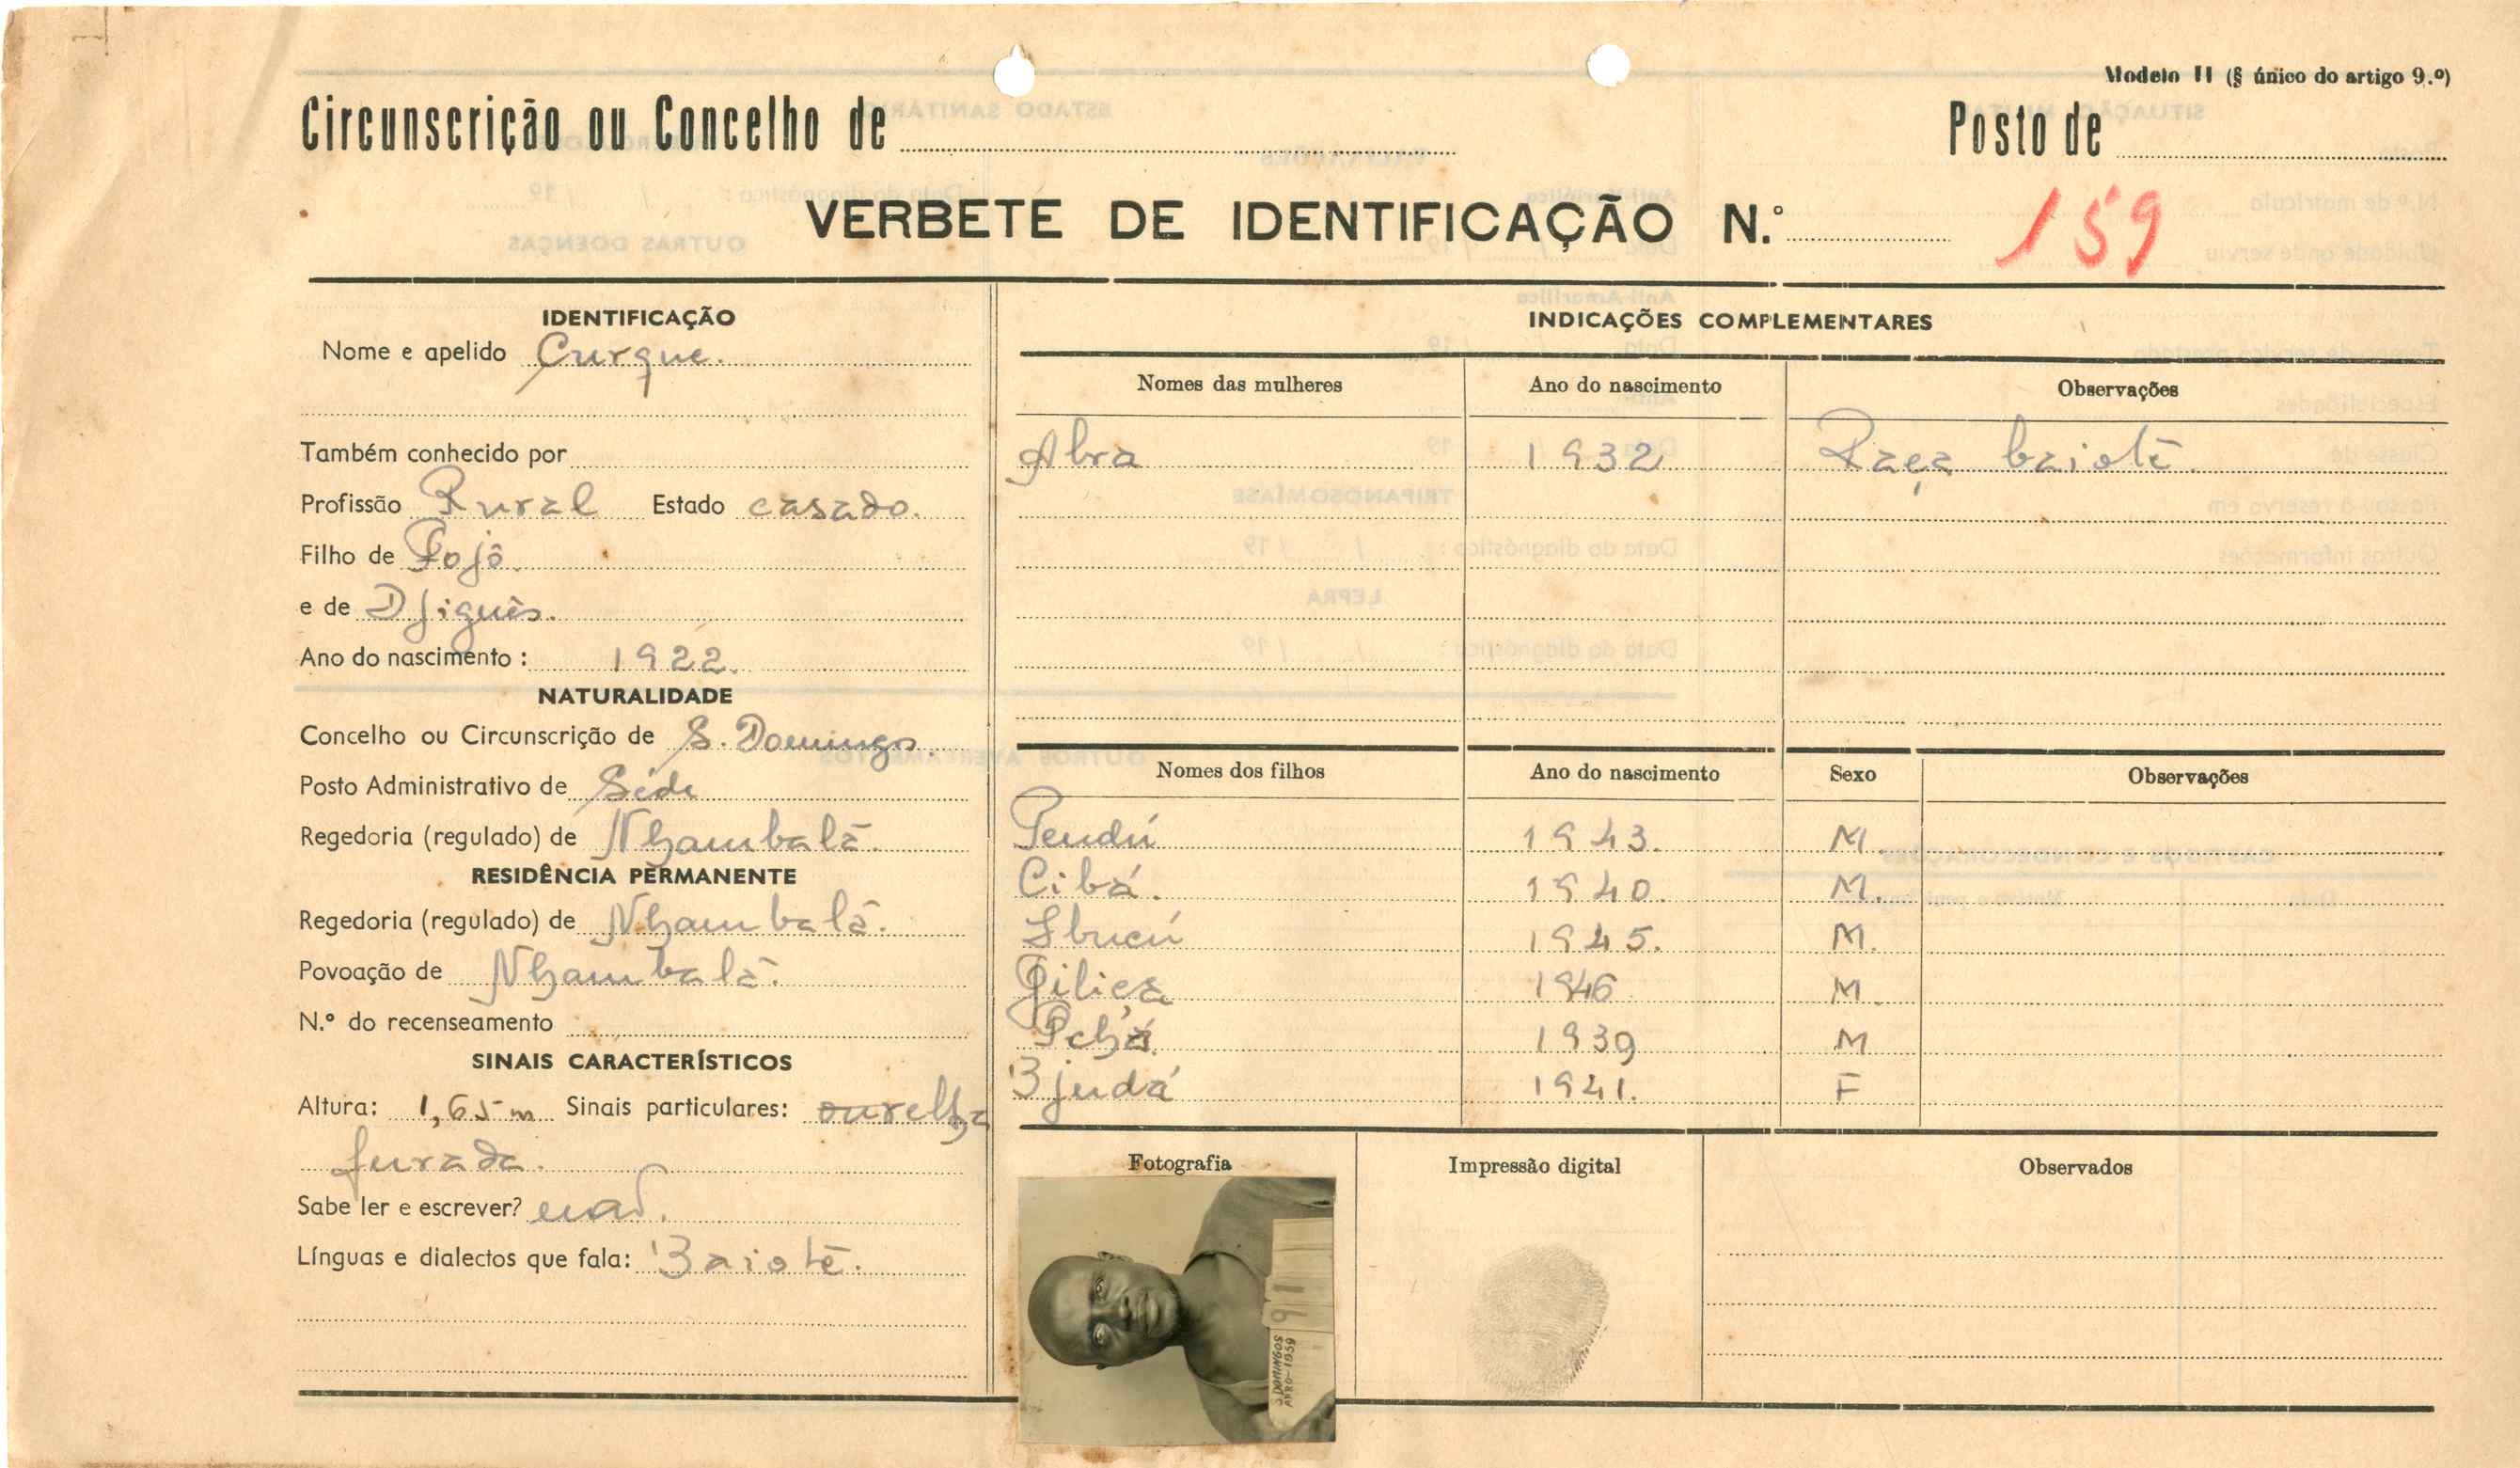 Modelo II (§ único do artigo 9.º)
Circunscrição ou Concelho de
Posto de
VERBETE DE IDENTIFICAÇÃO N.º 159
IDENTIFICAÇÃO
Nome e apelido Curque.
Também conhecido por
Profissão Rural Estado casado.
Filho de Pojô.
e de Djiguès.
Ano do nascimento: 1922.
NATURALIDADE
Concelho ou Circunscrição de S. Domingos.
Posto Administrativo de Séde
Regedoria (regulado) de Nhambalã.
RESIDÊNCIA PERMANENTE
Regedoria (regulado) de Nhambalã.
Povoação de Nhambalã.
N.º do recenseamento
SINAIS CARACTERÍSTICOS
Altura: 1,65 m Sinais particulares: ourelha
furada.
Sabe ler e escrever? não.
Línguas e dialectos que fala: Baiotē.
INDICAÇÕES COMPLEMENTARES
Nomes das mulheres Ano do nascimento Observações
Abra 1932 Raça baiotē.
Nomes dos filhos Ano do nascimento Sexo Observações
Pendú 1943. M.
Cibá. 1940. M.
1945. M.
1946 M.
1939 M
Bjudá 1941. F
Fotografia
Impressão digital
Observados
S. DOMINGOS